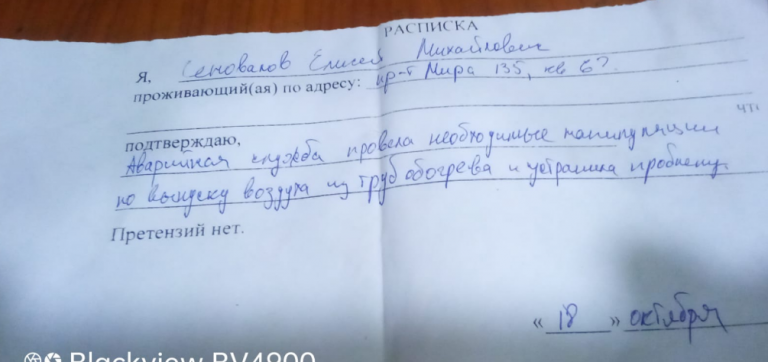 РАСПИСКА
Я, Сеновалов Елисей Михайлович
проживающий(ая) по адресу: пр-т Мира 135, кв 67.
что
подтверждаю,
Аварийная служба провела необходимые манипуляции
по выпуску воздуха из труб обогрева и устранила проблему.
Претензий нет.
« 18 » октября
Blackview BV4900